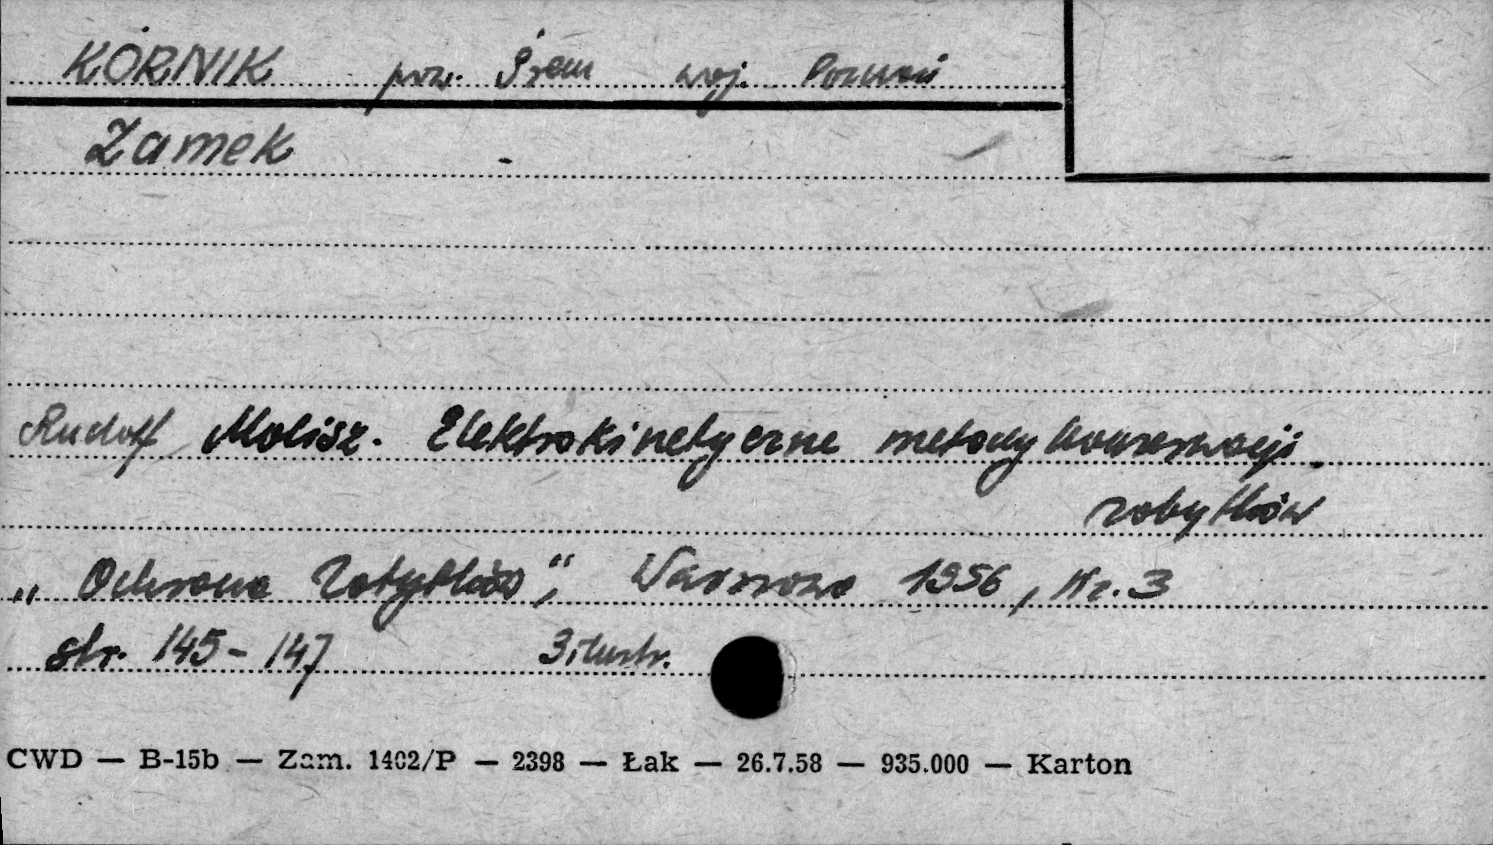 KÓRNIK pow. Śrem woj. Poznań
Zamek
Rudolf Molisz. Elektrokinetyczne metody konserwacji
zabytków
„Ochrona Zabytków”, Warszawa 1956, Nr. 3
str. 145-147 3 ilustr.
CWD — B-15b — Zam. 1402/P — 2398 — Łak — 26.7.58 — 935.000 — Karton